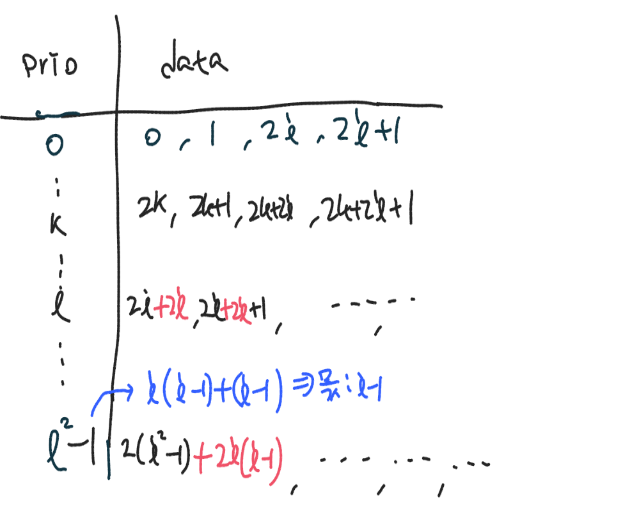 prio data
0 0, 1, 2l, 2l+1
⋮
k 2k, 2k+1, 2k+2l, 2k+2l+1
⋮
l 2l+2l, 2l+2l+1, -----, 
⋮
→ l(l-1)+(l-1) ⇒ 몫: l-1
l²-1 2(l²-1)+2l(l-1), ... , ... , ...